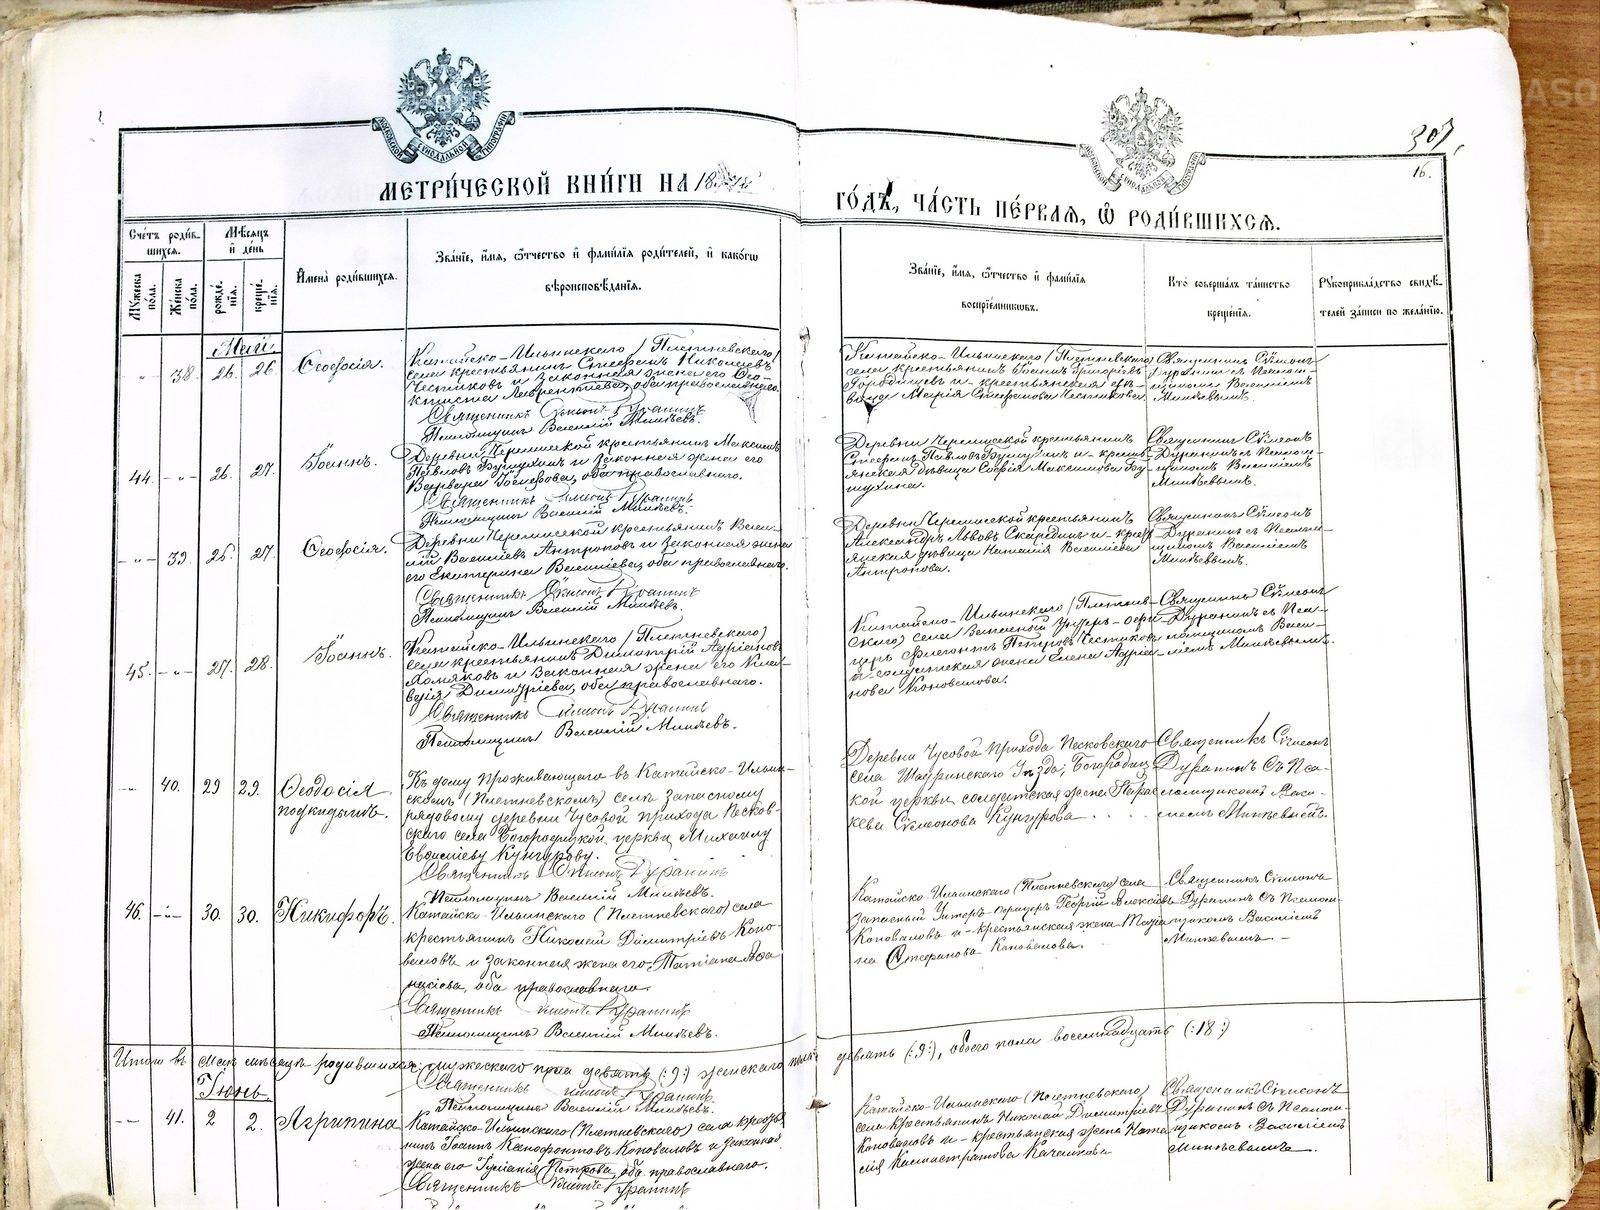 МОСКОВСКОЙ СѴНОДАЛЬНОЙ ТИПОГРАФІИ
МЕТРИ́ЧЕСКОЙ КНИ́ГИ НА 18
307.
16.
ГО́ДЪ, ЧА́СТЬ ПЕ́РВАЯ, Ѽ РОДИ́ВШИХСЯ.
Сче́тъ роди́в-
шихся.
Мѣ́сяцъ
и҆ де́нь
Мꙋ́жеска
по́ла.
Же́нска
по́ла.
рожде́-
нїя.
креще́-
нїя.
И҆мена̀ роди́вшихся.
Зва́нїе, и҆́мя, ѻ҆́тчество и҆ фами́лїя роди́телей, и҆ како́гѡ
вѣроисповѣ́данїя.
Зва́нїе, и҆́мя, ѻ҆́тчество и҆ фами́лїя
воспрїе́мниковъ.
Кто̀ соверша́лъ та́инство
креще́нїя.
Рꙋкоприкла́дство свидѣ́-
телей за́писи по жела́нїю.
Май
38. 26. 26. Ѳеодосія.
Катайско-Ильинскаго (Плетневскаго)
села крестьянинъ Стефанъ Николаевъ
Честиковъ и законная жена его Ѳео-
ктиста Лаврентіева, оба православнаго.
Священникъ Симеонъ Дуранинъ
Псаломщикъ Василій Минѣевъ.
Катайско-Ильинскаго (Плетневскаго)
села крестьянинъ Іоаннъ Григоріевъ
Городищевъ и крестьянская дѣ-
вица Марія Стефанова Честикова.
Священникъ Сѷмеонъ
Дуранинъ съ Псалом-
щикомъ Василіемъ
Минѣевымъ.
44. 26. 27. Іоаннъ.
Деревни Черемисской крестьянинъ Максимъ
Павловъ и законная жена его
Варвара Іосифова, оба православнаго.
Священникъ Симеонъ Дуранинъ
Псаломщикъ Василій Минѣевъ.
Деревни Черемисской крестьянинъ
Стефанъ Павловъ и крестъ-
янская дѣвица Софія Максимова
Священникъ Сѷмеонъ
Дуранинъ съ Псалом-
щикомъ Василіемъ
Минѣевымъ.
39. 25. 27. Ѳеодосія.
Деревни Черемисской крестьянинъ Васи-
лій Васильевъ Антроповъ и законная жена
его Екатерина Васильева, оба православнаго.
Священникъ Симеонъ Дуранинъ
Псаломщикъ Василій Минѣевъ.
Деревни Черемисской крестьянинъ
Александръ Львовъ Скарединъ и крест-
янская дѣвица Наталія Васильева
Антропова.
Священникъ Сѷмеонъ
Дуранинъ съ Псалом-
щикомъ Василіемъ
Минѣевымъ.
45. 27. 28. Іоаннъ.
Катайско-Ильинскаго (Плетневскаго)
села крестьянинъ Димитрій Адріановъ
Холяковъ и законная жена его Клав-
дія Димитріева, оба православнаго.
Священникъ Симеонъ Дуранинъ
Псаломщикъ Василій Минѣевъ.
Катайско-Ильинскаго (Плетнев-
скаго) села запасной Унтеръ-офи-
церъ Филонтъ Петровъ Честиковъ
и солдатская жена Елена Адріа-
нова Коновалова.
Священникъ Сѷмеонъ
Дуранинъ съ Пса-
ломщикомъ Васи-
ліемъ Минѣевымъ.
40. 29 29. Ѳеодосія
подкидышъ.
Къ дому проживающаго въ Катайско-Ильин-
скомъ (Плетневскомъ) селѣ запасному
рядовому деревни Чусовой прихода Песков-
скаго села Богородицкой церкви Михаилу
Евсигніеву Кунгурову.
Священникъ Симеонъ Дуранинъ
Псаломщикъ Василій Минѣевъ.
Деревни Чусовой прихода Песковскаго
села Шадринскаго Уѣзда, Богородиц-
кой церкви солдатская жена Парас-
кева Сѷмеонова Кунгурова . . . .
Священникъ Сѷмеонъ
Дуранинъ Съ Пса-
ломщикомъ Васи-
ліемъ Минѣевымъ.
46. 30. 30. Никифоръ.
Катайско-Ильинскаго (Плетневскаго) села
крестьянинъ Николай Димитріевъ Коно-
валовъ и законная жена его Татіана Аѳа-
насіева, оба православнаго.
Священникъ Симеонъ Дуранинъ
Псаломщикъ Василій Минѣевъ.
Катайско-Ильинскаго (Плетневскаго) села
запасный Унтеръ-офицеръ Георгій Алексіевъ
Коноваловъ и крестьянская жена Татіа-
на Стефанова Коновалова.
Священникъ Сѷмеонъ
Дуранинъ Съ Псалом-
щикомъ Василіемъ
Минѣевымъ.
Итого въ Маѣ мѣсяцѣ родившихся: мужескаго пола девять (:9:), женскаго пола девять (:9:), обоего пола восемнадцать (:18:)
Священникъ Симеонъ Дуранинъ.
Псаломщикъ Василій Минѣевъ.
Іюнь.
41. 2 2. Агрипина
Катайско-Ильинскаго (Плетневскаго) села крестья-
нинъ Іоаннъ Ксенофонтовъ Коноваловъ и законная
жена его Іуліанія Петрова, оба православнаго.
Священникъ Симеонъ Дуранинъ
Катайско-Ильинскаго (Плетневскаго)
села крестьянинъ Николай Димитріевъ
Коноваловъ и крестьянская жена Ната-
лія Калистратова Качалкова
Священникъ Сѷмеонъ
Дуранинъ съ Псалом-
щикомъ Василіемъ
Минѣевымъ.